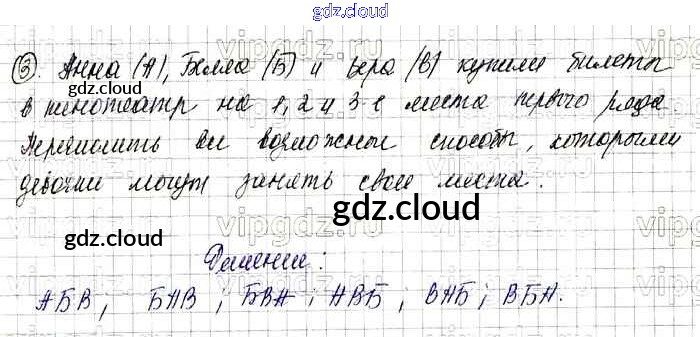 gdz.cloud
③. Анна (А), Белла (Б) и Вера (В) купили билеты
в кинотеатр на 1, 2 и 3-е места первого ряда
Перечислить все возможные способы, которыми
девочки могут занять свои места.
gdz.cloud
gdz.cloud
Решение:
АБВ, БАВ; БВА; АВБ; ВАБ; ВБА.